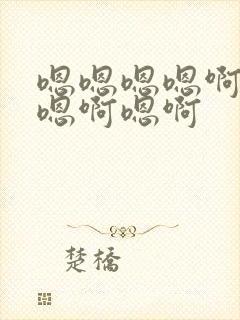 嗯嗯嗯嗯啊
嗯啊嗯啊
楚橋